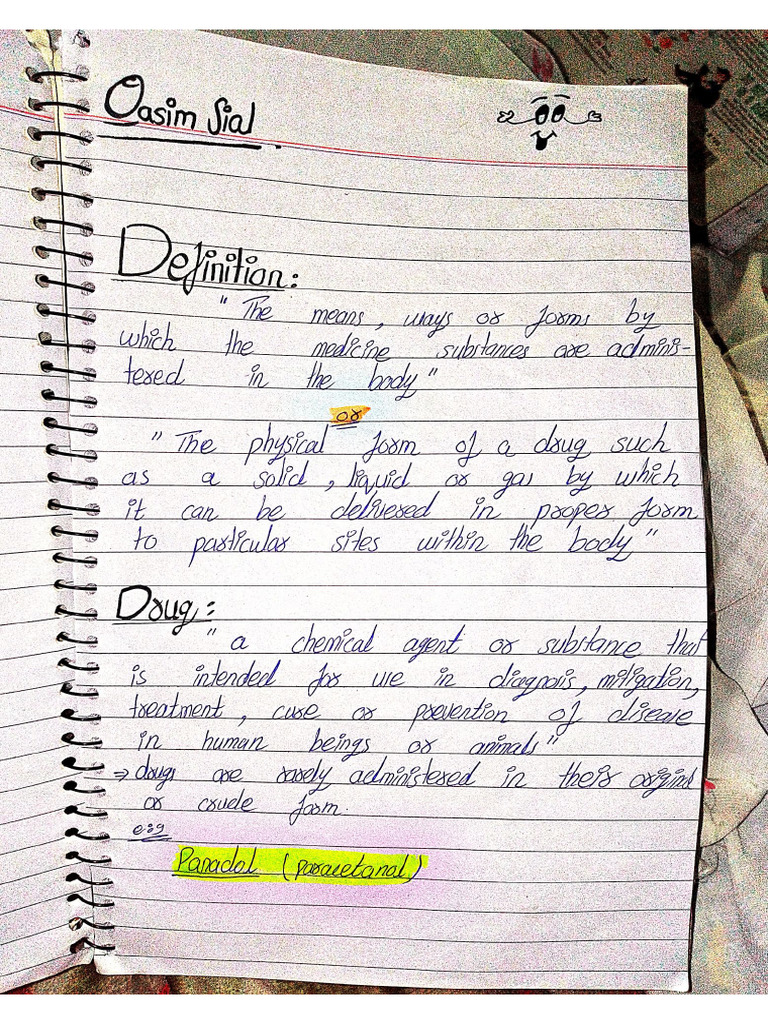 Qasim Sial
Definition:
" The means, ways or forms by
which the medicine substances are adminis-
tered in the body"
or
" The physical form of a drug such
as a solid, liquid or gas by which
it can be delivered in proper form
to particular sites within the body"
Drug:
" a chemical agent or substance that
is intended for use in diagnosis, mitigation,
treatment, cure or prevention of disease
in human beings or animals"
⇒ drugs are rarely administered in their original
or crude form.
e:g
Panadol (paracetamol)